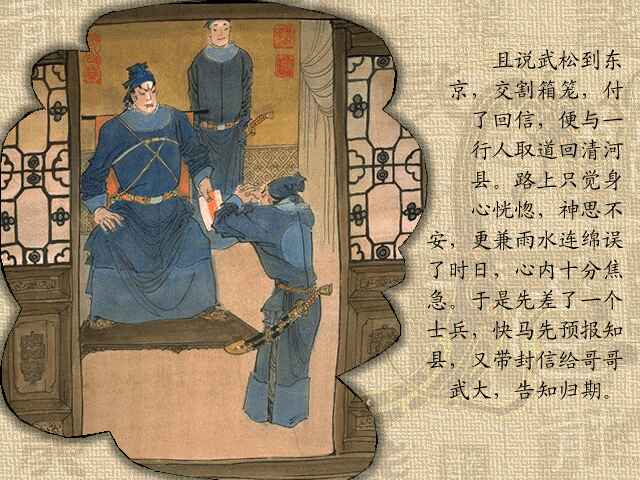 且说武松到东
京，交割箱笼，付
了回信，便与一
行人取道回清河
县。路上只觉身
心恍惚，神思不
安，更兼雨水连绵误
了时日，心内十分焦
急。于是先差了一个
士兵，快马先预报知
县，又带封信给哥哥
武大，告知归期。